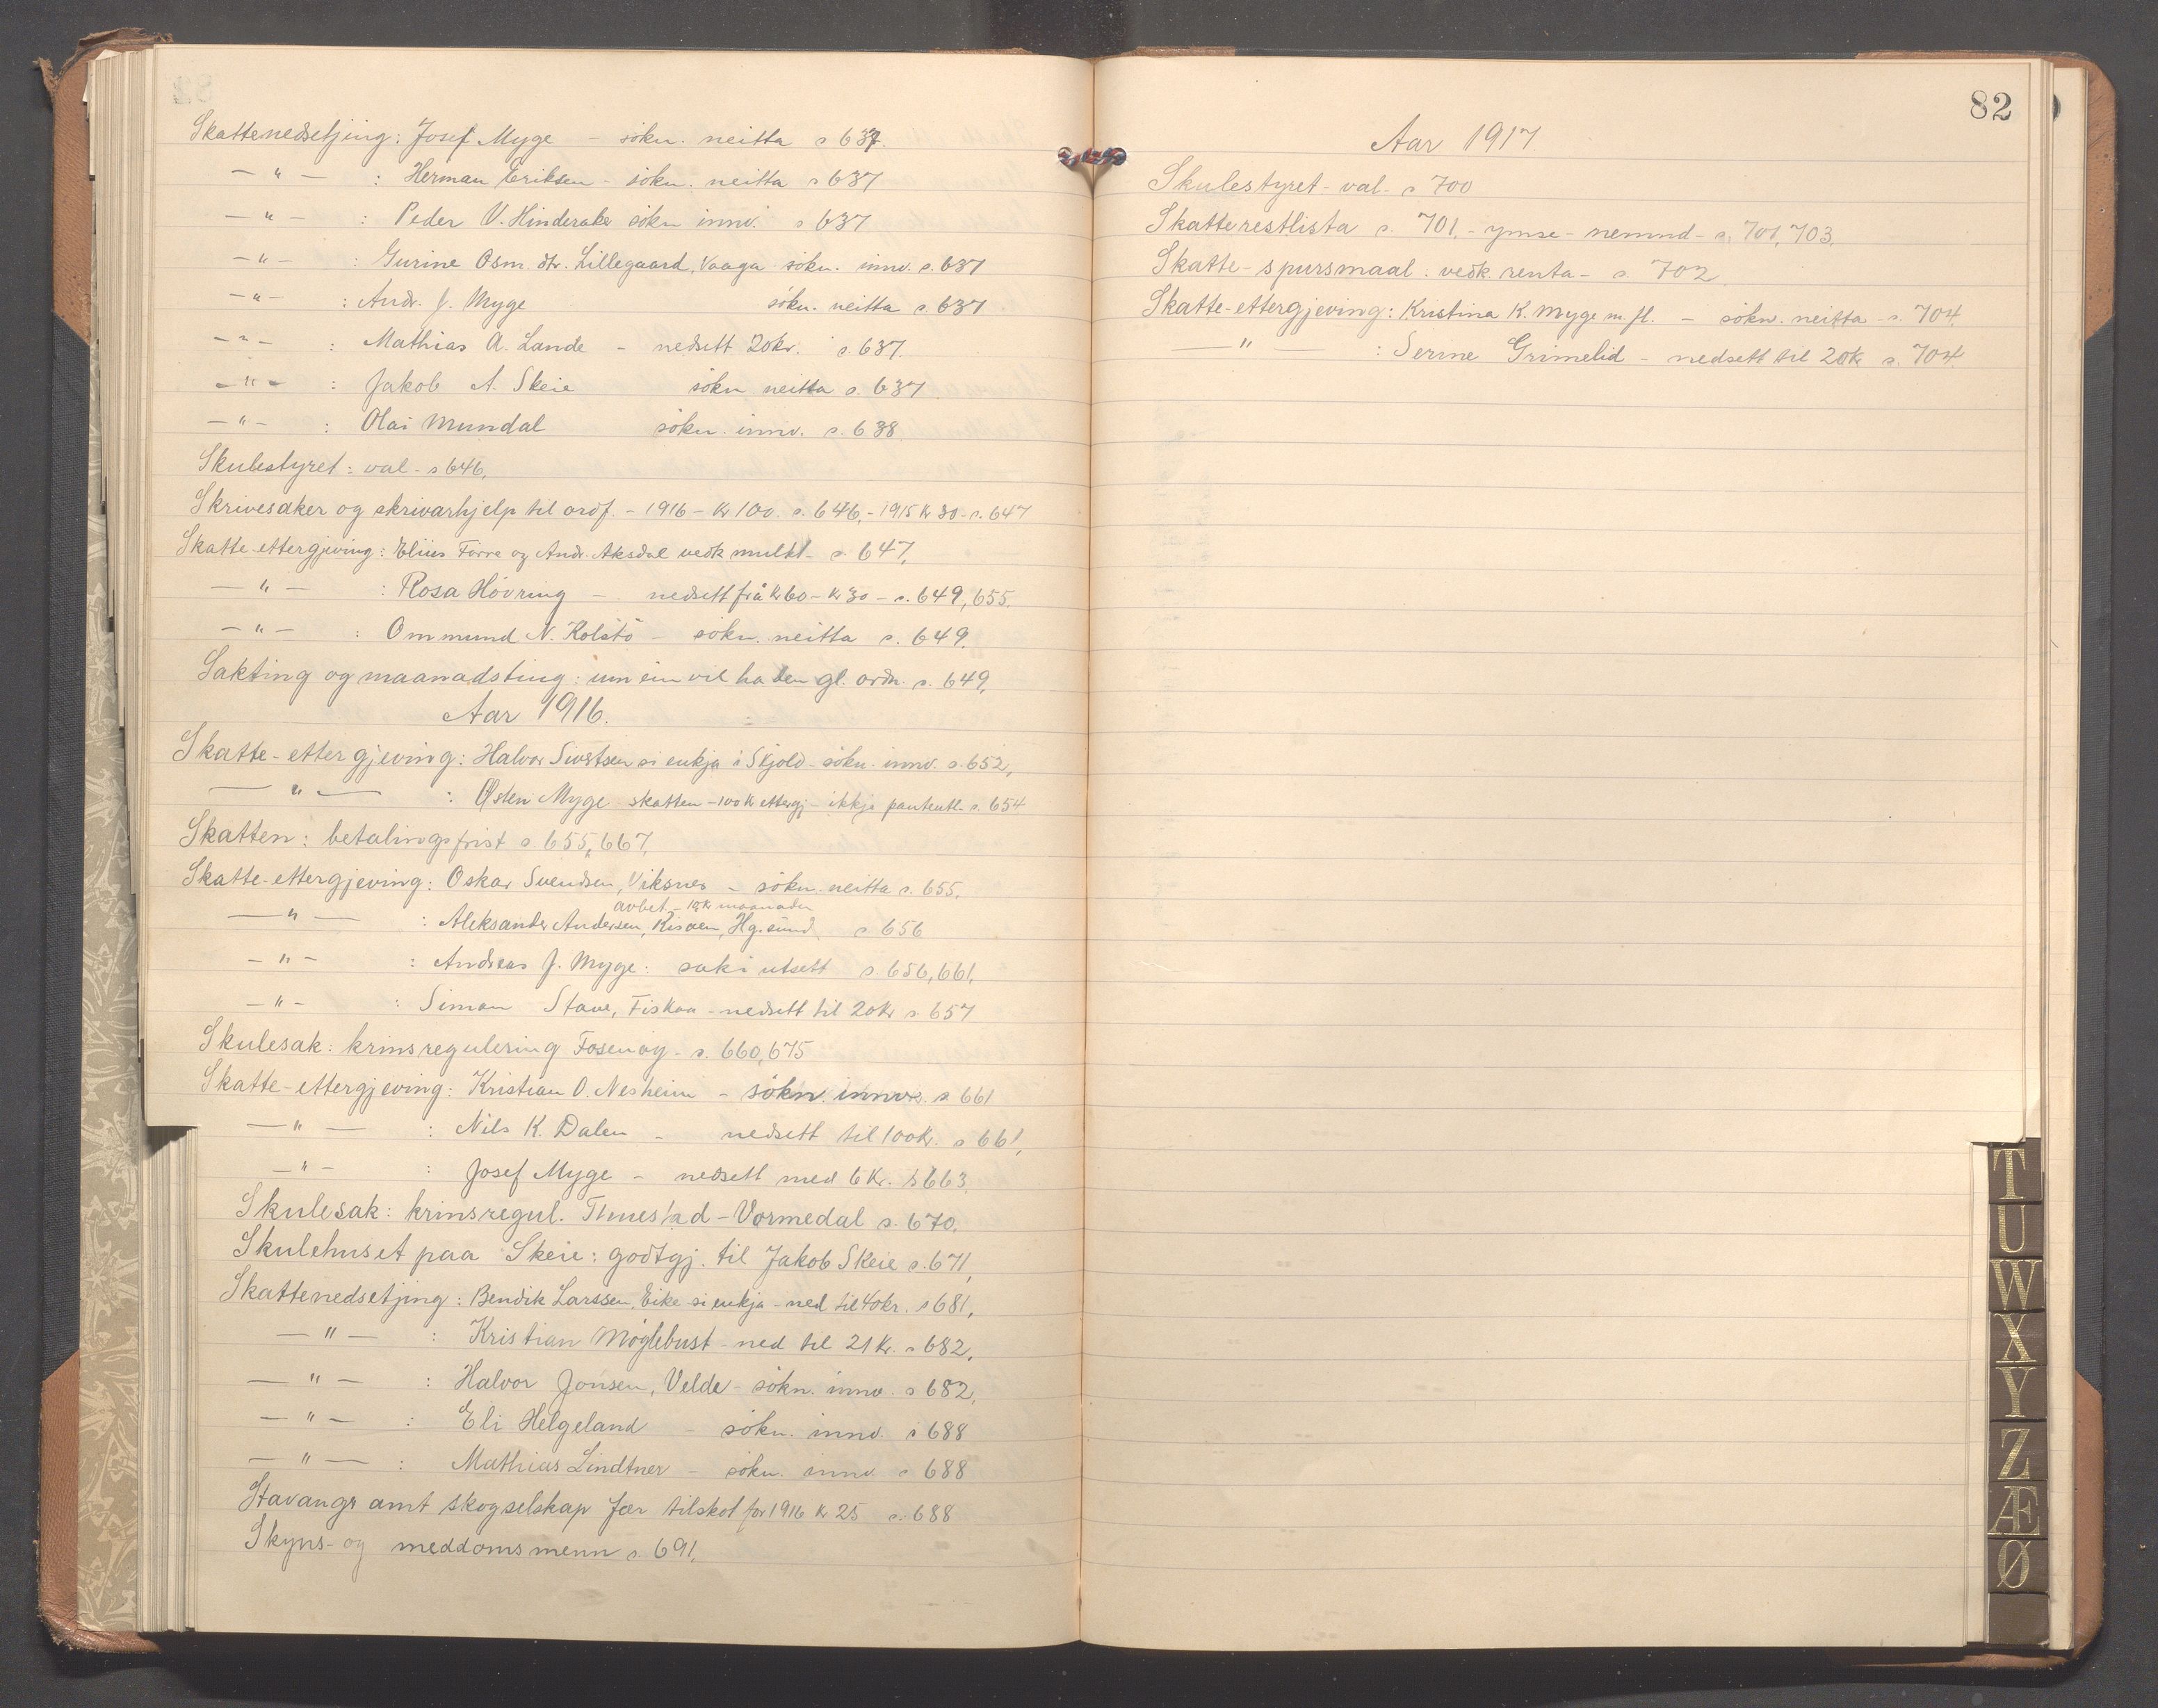 Skattenedsetjing: Josef Myge - sökn. neitta s 637.
- " - : Herman Eriksen - sökn. neitta s 637
- " - : Peder V. Hinderaker sökn innv. s 637
- " - : Gurine Osm. dtr. Lillegaard, Vaaga sökn. innv. s. 637
- " - : Andr. J. Myge sökn. neitta s. 637
- " - : Mathias A. Lande - nedsett 20kr. s. 637.
- " - : Jakob A. Skeie sökn neitta s. 637.
- " - : Olai Mundal sökn. innv. s. 638
Skulestyret: val - s 646,
Skrivesaker og skrivarhjelp til ordf. - 1916 - kr 100. s. 646, - 1915 kr 30 - s. 647
Skatte-ettergjeving: Elius Förre og Andr. Aksdal vedk mulkt - s. 647,
- " - : Rosa Hövring - nedsett frå kr 60 - kr 30 - s. 649, 655.
- " - : Ommund N. Kolstö - sökn. neitta s. 649.
Sakting og maanadsting: um ein vil ha den gl. ordn. s. 649,
Aar 1916.
Skatte-ettergjeving: Halvor Sivertsen si enkja i Skjold - sökn. innv. s. 652,
- " - : Østen Myge skatten - 100 kr ettergj - ikkje pantentl. s. 654
Skatten: betalingsfrist s. 655, 667,
Skatte-ettergjeving: Oskar Svendsen, Viksnes - sökn. neitta s. 655,
avbet. - 10kr maanaden
- " - : Aleksander Andersen, Risöen, Hg.sund s 656
- " - : Andreas J. Myge: saki utsett s 656, 661,
- " - : Simon Stave, Fiskaa - nedsett til 20kr s. 657
Skulesak: krinsregulering Fosenöy - s. 660, 675
Skatte-ettergjeving: Kristian O. Nesheim - sökn. innv. s 661
- " - : Nils K. Dalen - nedsett til 100kr. s 661,
- " - : Josef Myge - nedsett med 6 kr. s 663,
Skulesak: krinsregul. Thuestad - Vormedal s. 670,
Skulehuset paa Skeie: godtgj. til Jakob Skeie s. 671,
Skattenedsetjing: Bendik Larssen, Eike si enkja - ned til 40kr. s 681,
- " - : Kristian Möglebust - ned til 21 kr. s 682,
- " - : Halvor Jonsen, Velde - sökn. innv. s 682,
- " - : Eli Helgeland - sökn. innv. s 688
- " - : Mathias Lindtner - sökn. innv. s 688
Stavanger amt skogselskap fær tilskot for 1916 kr 25 s. 688
Skyns- og meddomsmenn s. 691,
82
Aar 1917
Skulestyret - val - s 700
Skatterestlista s. 701, - ymse - nemnd - s. 701, 703,
Skatte-spursmaal: vedk. renta - s. 702
Skatte-ettergjeving: Kristina K. Myge m. fl. - sökn. neitta - s. 704,
- " - : Serine Grimelid - nedsett til 20k s. 704
T
U
W
X
Y
Z
Æ
Ø